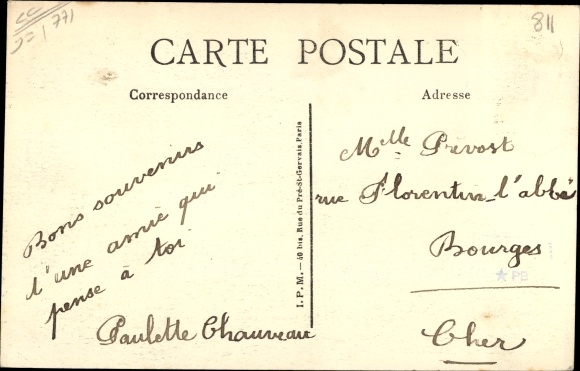 811
CARTE POSTALE
Correspondance
Adresse
Bons souvenirs
d'une amie qui
pense à toi
Paulette Chauveau
I.P.M. — 40 bis, Rue du Pré-St-Gervais, Paris
Melle Prévost
rue Florentin-l'abbé
Bourges
★ PB
Cher